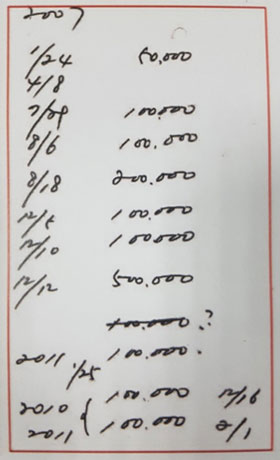 2007
1/24 50.000
4/8
100.000
8/6 100.000
8/18 200.000
12/7 100.000
12/10 100000
12/12 500.000
2011 1/25 100.000
2010 100.000 12/16
2011 100.000 1/2